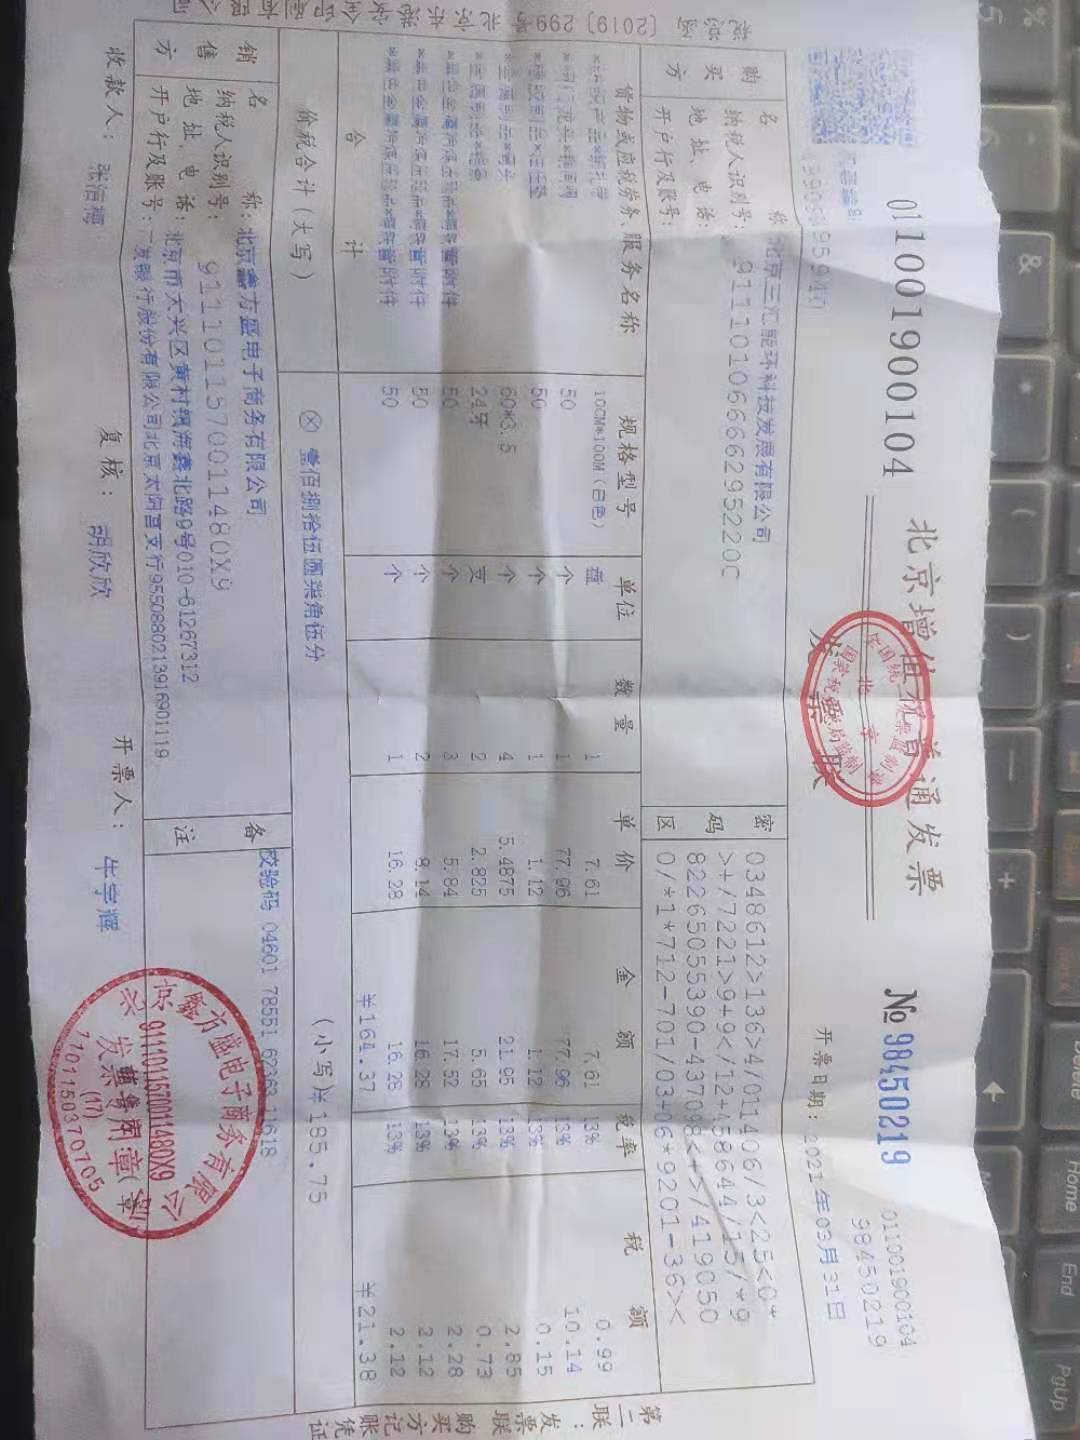 011001900104
北京增值税普通发票
发票联
№ 98450219
011001900104
98450219
开票日期：2021年03月31日
购买方
名称：北京三汇能环科技发展有限公司
纳税人识别号：91110106666295220C
地址、电话：
开户行及账号：
密码区
0348612>136>4/011406/3<25<0*
>+/7221>9+9</12+458644/15/*9
82265055390-437098<+>/419050
0/*1*712-701/03+06*9201-36><
货物或应税劳务、服务名称 规格型号 单位 数量 单价 金额 税率 税额
10CM*100M（白色） 盘 1 7.61 7.61 13% 0.99
50 个 1 77.96 77.96 13% 10.14
50 个 1 1.12 1.12 13% 0.15
60*3.5 个 4 5.4875 21.95 13% 2.85
24牙 支 2 2.825 5.65 13% 0.73
50 个 3 5.84 17.52 13% 2.28
50 个 2 8.14 16.28 13% 2.12
50 个 1 16.28 16.28 13% 2.12
合计 ¥164.37 ¥21.38
价税合计（大写） ⊗ 壹佰捌拾伍圆柒角伍分 （小写）¥185.75
销售方
名称：北京鑫方盛电子商务有限公司
纳税人识别号：9111011570011480X9
地址、电话：北京市大兴区黄村镇海鑫北路9号010-61267312
开户行及账号：广发银行股份有限公司北京太阳宫支行9550880213916901119
备注
校验码 04601 78551 62363 11618
收款人：张洁梅 复核：胡欣欣 开票人：牛宇辉
第二联：发票联 购买方记账凭证
9111011570011480X9
发票专用章
(17)
1101150370705
%
5
6
&
*
(
)
+
Delete
Home
End
PgUp